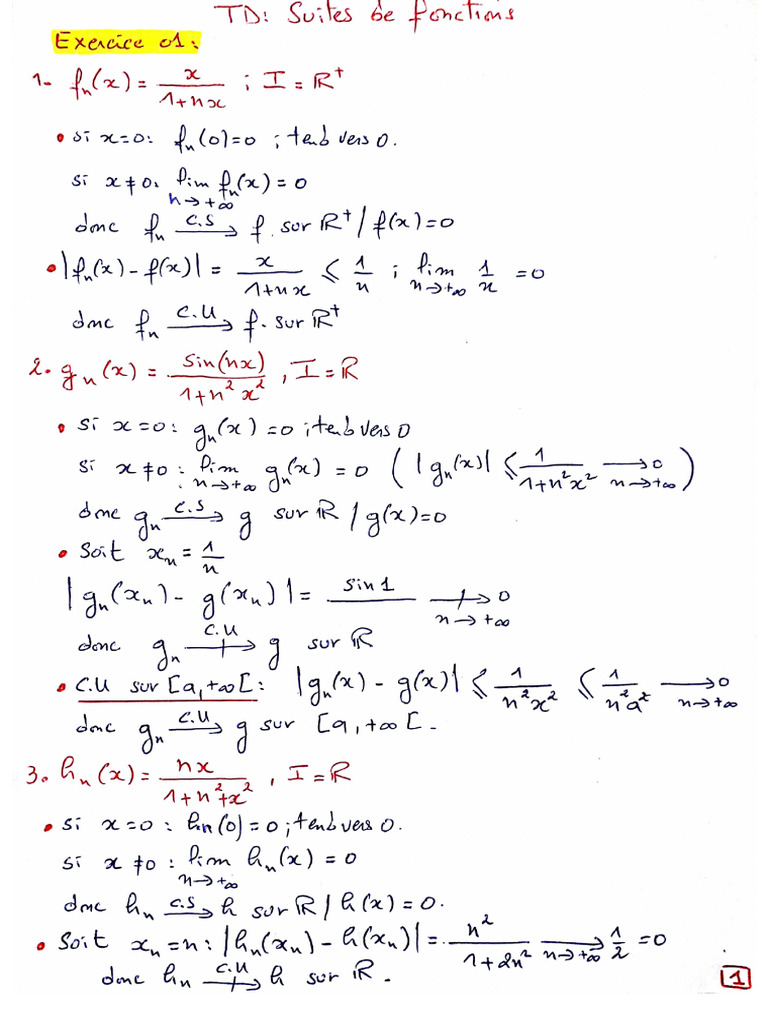 TD: Suites de fonctions
Exercice 01:
1- fₙ(x) = x/(1+nx) ; I = ℝ⁺
• si x=0: fₙ(0)=0 ; tend vers 0.
si x≠0. lim_{n→+∞} fₙ(x) = 0
donc fₙ —C.S→ f. sur ℝ⁺ / f(x)=0
• |fₙ(x) - f(x)| = x/(1+nx) ≤ 1/n ; lim_{n→+∞} 1/n = 0
donc fₙ —C.U→ f. sur ℝ⁺
2. gₙ(x) = sin(nx)/(1+n²x²) , I = ℝ
• si x=0: gₙ(x) = 0 ; tend vers 0
si x≠0 : lim_{n→+∞} gₙ(x) = 0 ( |gₙ(x)| ≤ 1/(1+n²x²) →_{n→+∞} 0 )
donc gₙ —C.S→ g sur ℝ / g(x)=0
• Soit xₙ = 1/n
|gₙ(xₙ) - g(xₙ)| = sin 1/ ↛_{n→+∞} 0
donc gₙ —C.U↛ g sur ℝ
• C.U sur [a,+∞[ : |gₙ(x) - g(x)| ≤ 1/(n²x²) ≤ 1/(n²a²) →_{n→+∞} 0
donc gₙ —C.U→ g sur [a,+∞[.
3. hₙ(x) = nx/(1+n²+x²) , I = ℝ
• si x=0 : hₙ(0) = 0 ; tend vers 0.
si x≠0 : lim_{n→+∞} hₙ(x) = 0
donc hₙ —C.S→ h sur ℝ / h(x) = 0.
• Soit xₙ = n : |hₙ(xₙ) - h(xₙ)| = n²/(1+2n²) →_{n→+∞} 1/2 = 0
donc hₙ —C.U↛ h sur ℝ.
1